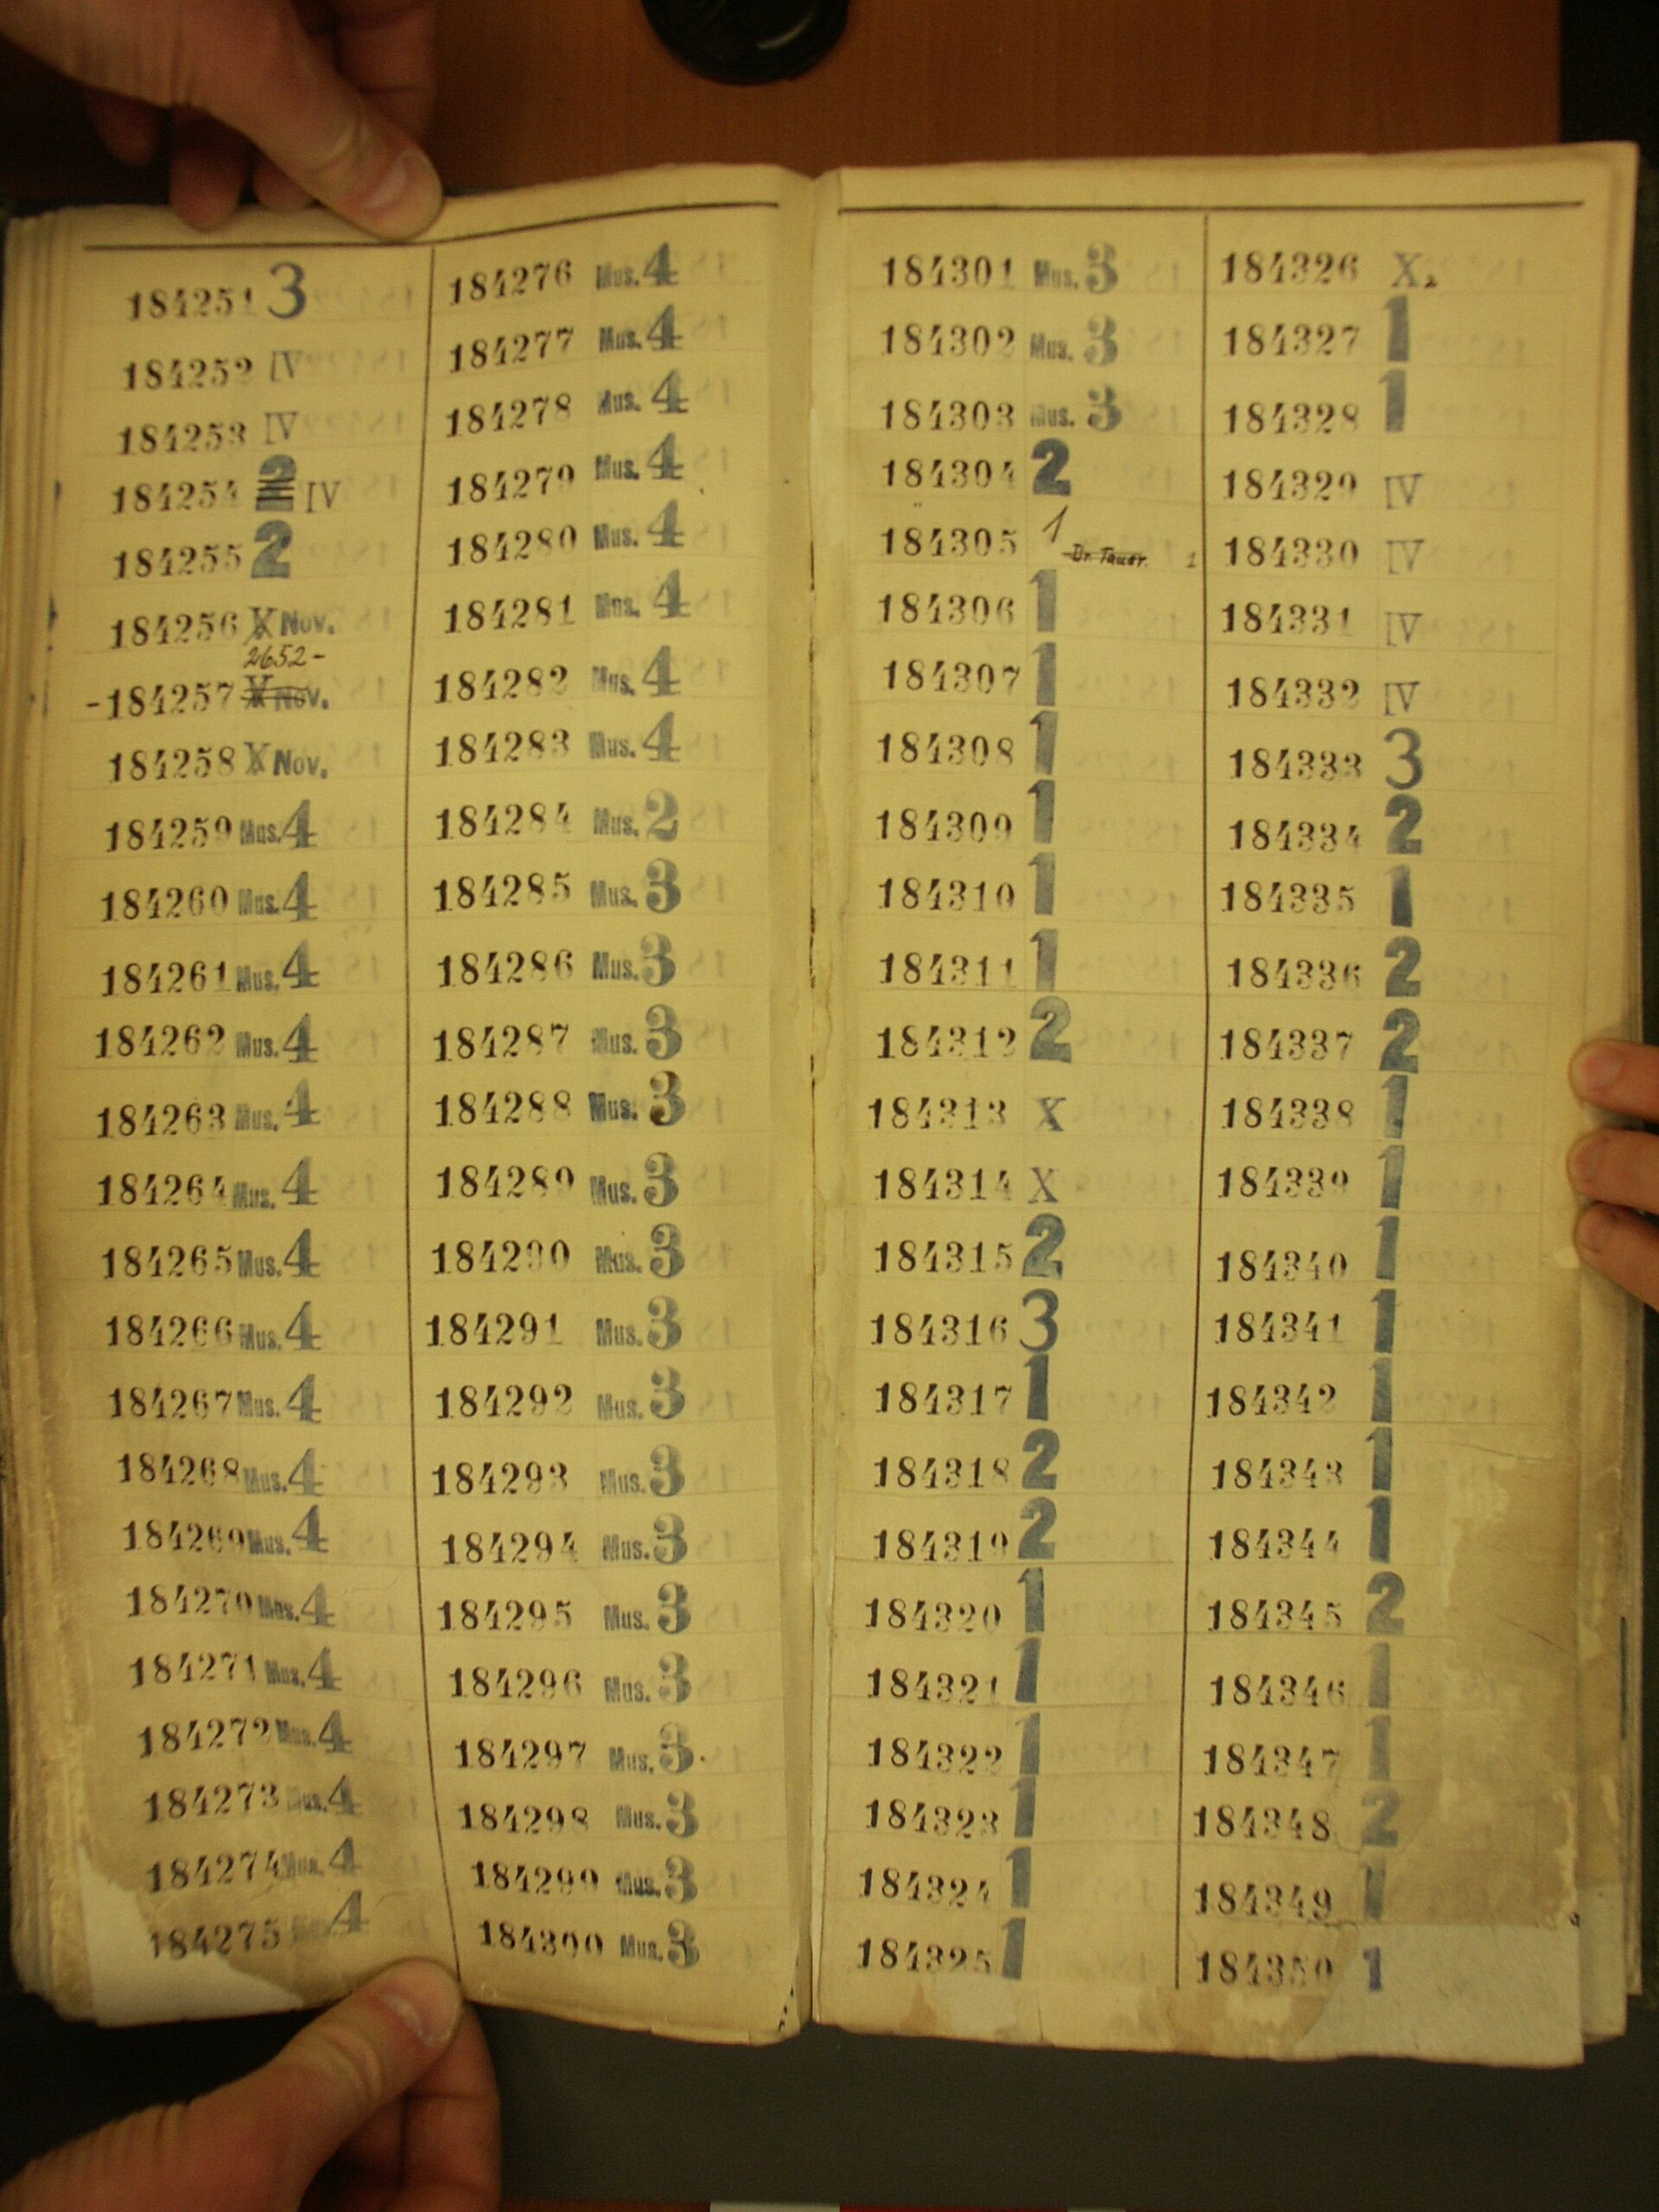 184251 3
184252 IV
184253 IV
184254 2 IV
184255 2
184256 X Nov.
2652-
-184257 X Nov.
184258 X Nov.
184259 Mus. 4
184260 Mus. 4
184261 Mus. 4
184262 Mus. 4
184263 Mus. 4
184264 Mus. 4
184265 Mus. 4
184266 Mus. 4
184267 Mus. 4
184268 Mus. 4
184269 Mus. 4
184270 Mus. 4
184271 Mus. 4
184272 Mus. 4
184273 Mus. 4
184274 Mus. 4
184275 Mus. 4
184276 Mus. 4
184277 Mus. 4
184278 Mus. 4
184279 Mus. 4
184280 Mus. 4
184281 Mus. 4
184282 Mus. 4
184283 Mus. 4
184284 Mus. 2
184285 Mus. 3
184286 Mus. 3
184287 Mus. 3
184288 Mus. 3
184289 Mus. 3
184290 Mus. 3
184291 Mus. 3
184292 Mus. 3
184293 Mus. 3
184294 Mus. 3
184295 Mus. 3
184296 Mus. 3
184297 Mus. 3
184298 Mus. 3
184299 Mus. 3
184300 Mus. 3
184301 Mus. 3
184302 Mus. 3
184303 Mus. 3
184304 2
184305 1 Dr. Tauer. 1
184306 1
184307 1
184308 1
184309 1
184310 1
184311 1
184312 2
184313 X
184314 X
184315 2
184316 3
184317 1
184318 2
184319 2
184320 1
184321 1
184322 1
184323 1
184324 1
184325 1
184326 X.
184327 1
184328 1
184329 IV
184330 IV
184331 IV
184332 IV
184333 3
184334 2
184335 1
184336 2
184337 2
184338 1
184339 1
184340 1
184341 1
184342 1
184343 1
184344 1
184345 2
184346 1
184347 1
184348 2
184349 1
184350 1